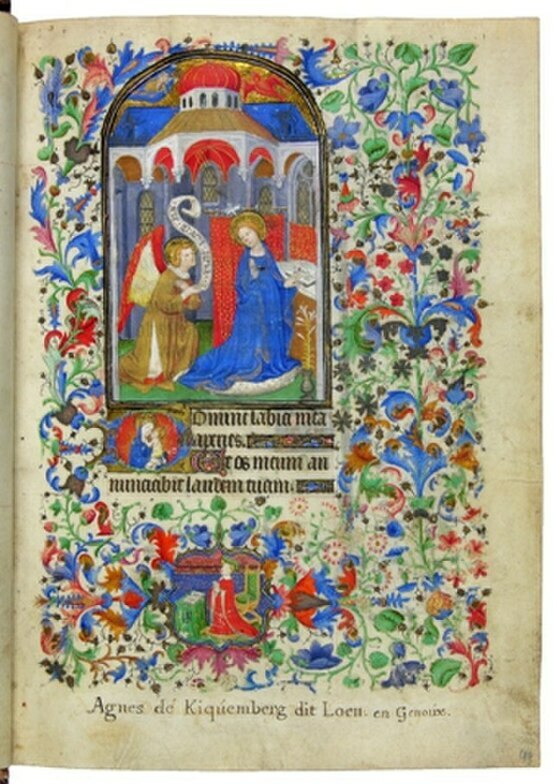 Domine labia mea
aperies.
Et os meum an
nunciabit laudem tuam.
Agnes de Kiquemberg dit Loen. en Genoux.